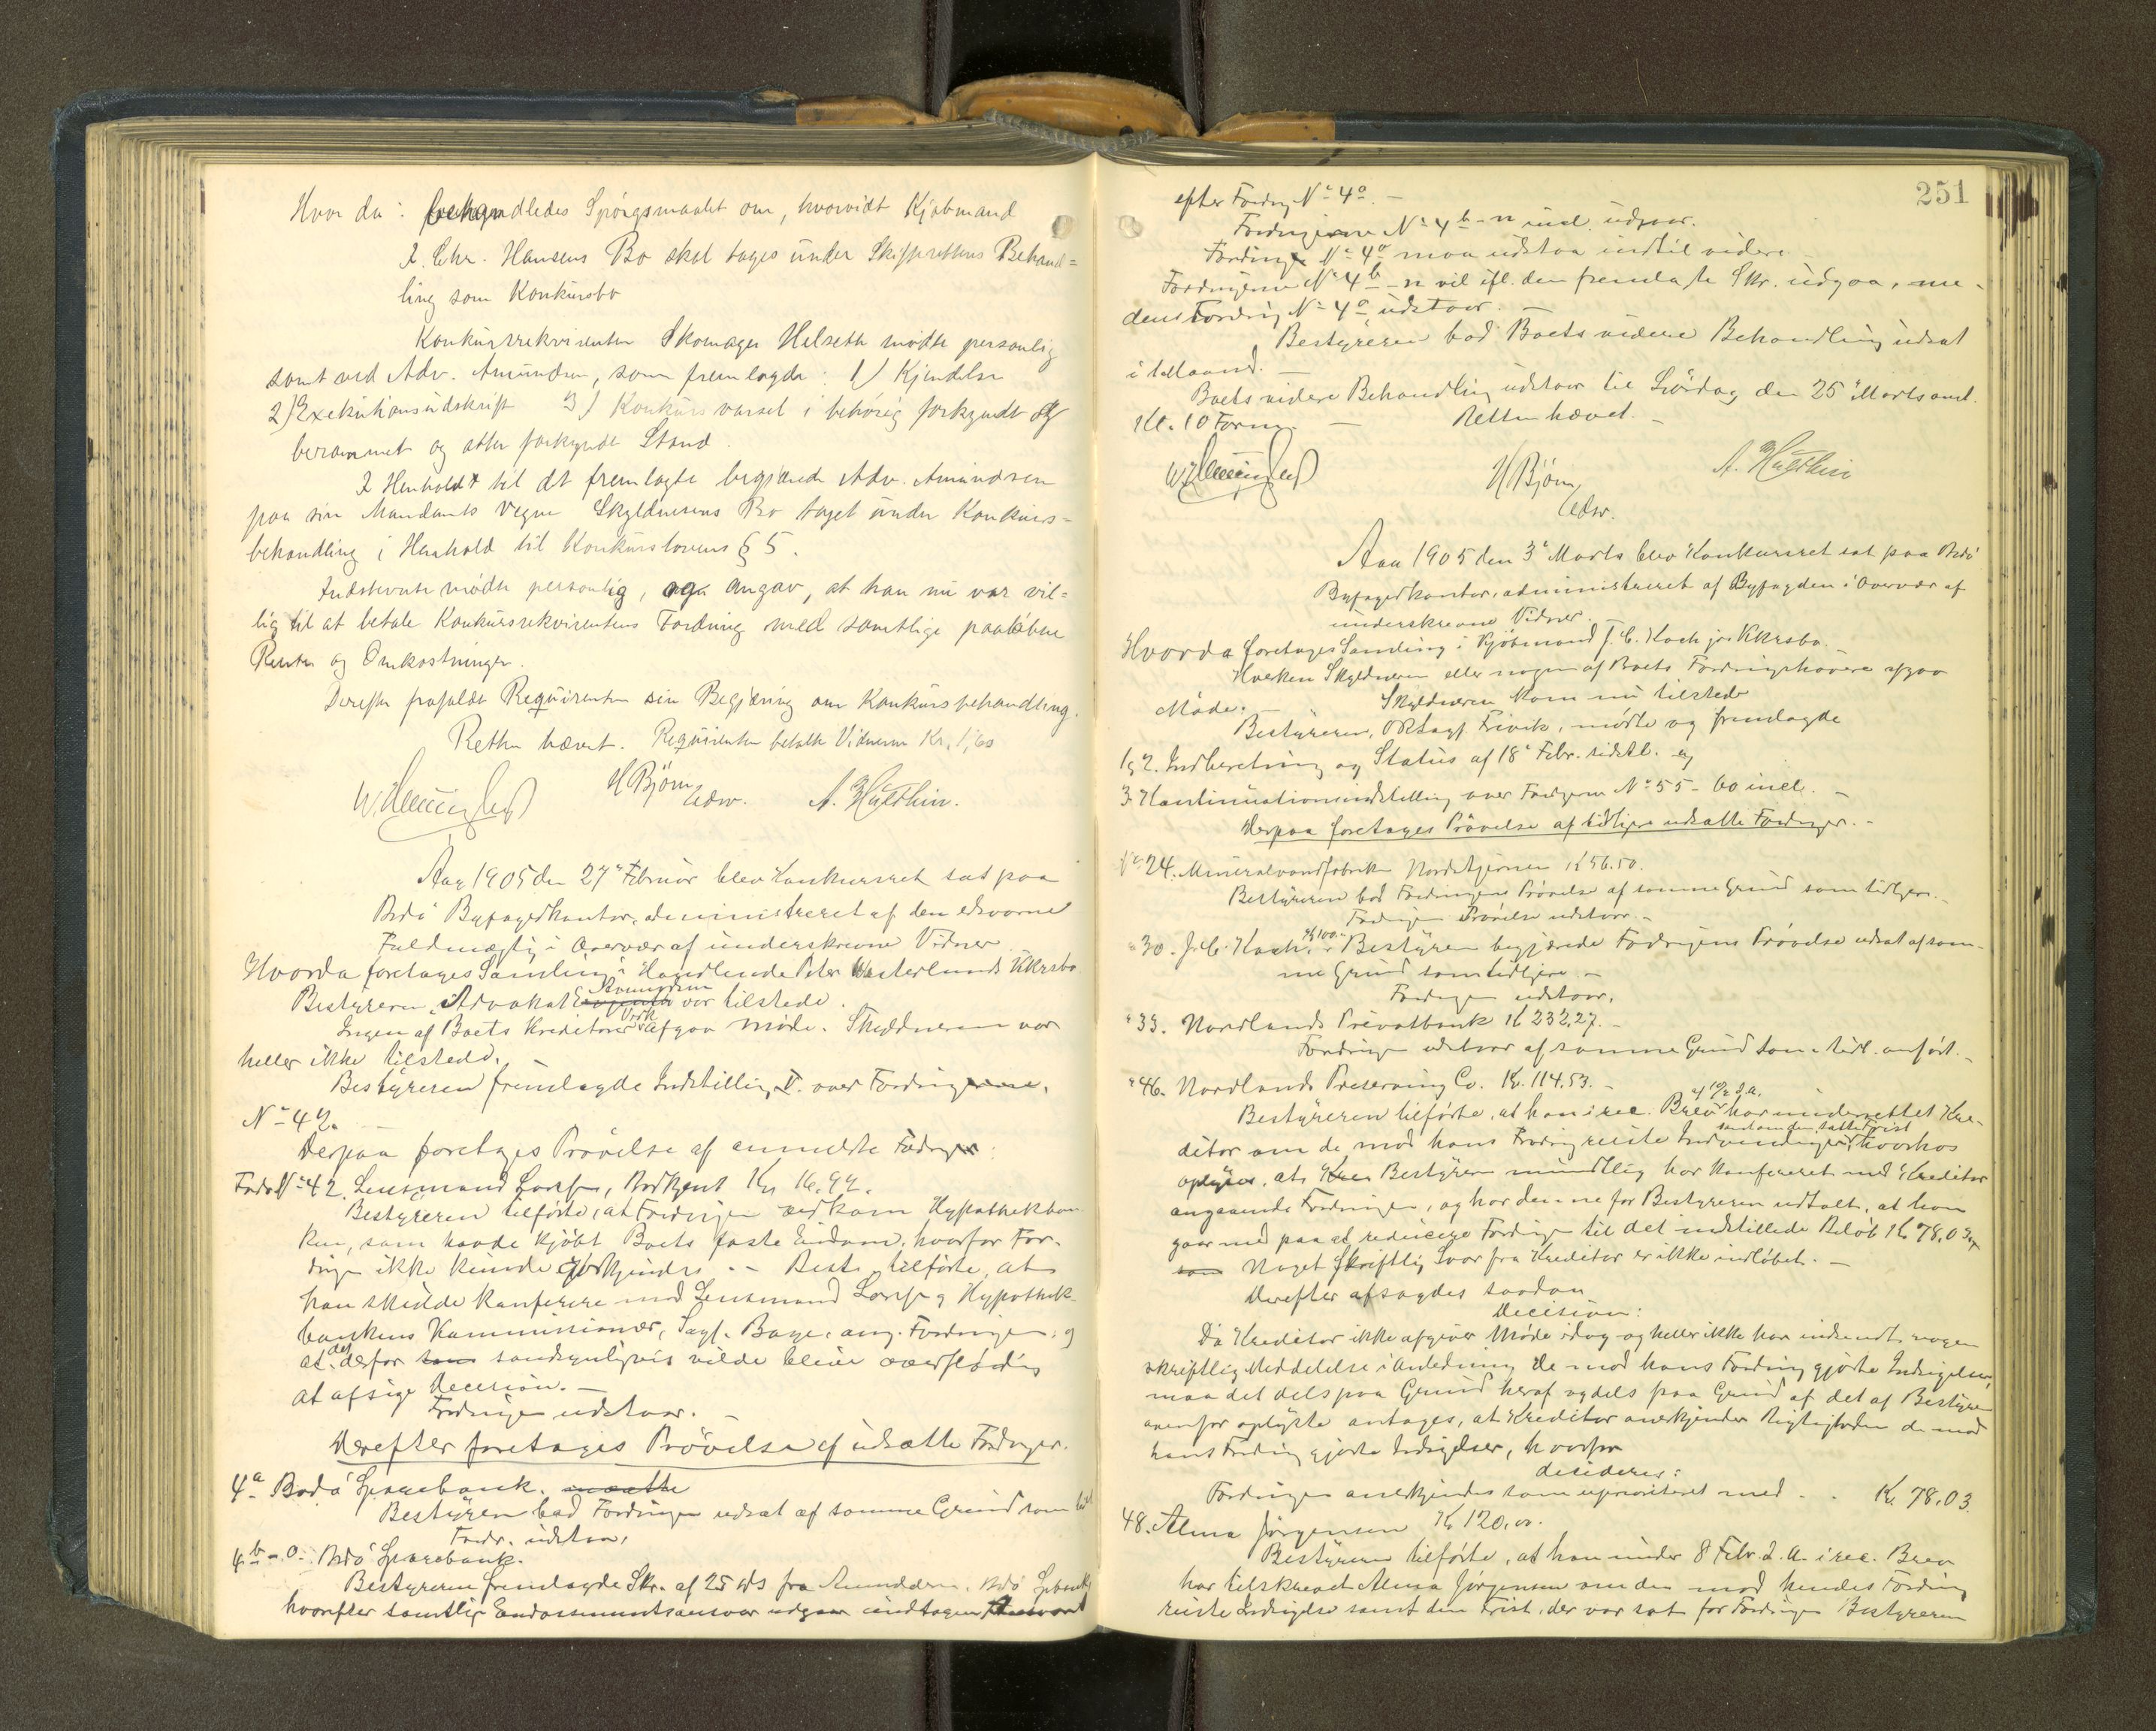 Hvor da: behandledes Spörgsmaalet om, hvorvidt Kjøbmand
I. Chr. Hansens Bo skal tages under Skifterettens Behand=
ling som Konkursbo
Konkursrekvirenten Skomager Helseth mødte personlig
samt ved Adv. Amundsen, som fremlagde: 1) Kjendelse
2) Exekutionsudskrift 3) Konkursvarsel i behørig forkyndt og
berammet og atter forkyndt Stand.
I Henhold til det fremlagte begjærede Adv. Amundsen
paa sin Mandants Vegne Skyldnerens Bo taget under Konkurs-
behandling i Henhold til Konkurslovens § 5.
Indstevnte mødte personlig, og angav, at han nu var vil=
lig til at betale Konkursrekvirentens Fordring med samtlige paaløbne
Renter og Omkostninger.
Derefter frafaldt Requirenten sin Begjæring om Konkursbehandling.
Retten hævet. Requirenten betalte Vidnerne Kr. 1,60
H Björn
Edsv. A. Hülthin.
Aar 1905 den 27' Februar blev Konkursret sat paa
Bodö Byfogedkontor, administreret af den edsvorne
Fuldmægtig i Overvær af underskrevne Vidner
Hvorda foretages Samling i Handlende Peter Westerlunds Kkrsbo
Bestyreren, Advokat Amundsen var tilstede.
Ingen af Boets Kreditorer afgav Møde. Skyldneren var
heller ikke tilstede.
Bestyreren fremlagde Indstilling V. over Fordringerne.
No 42.
Derpaa foretages Prövelse af anmeldte Fordringer:
Fordr No 42. Lensmand , Kr. 16.92.
Bestyreren tilförte, at Fordringen vedkom Hypothekban-
ken, som havde kjöbt Boets faste Eiendom, hvorfor For-
dringen ikke kunde godkjendes. - Best. tilförte, at
han skulde konferere med Lensmand og Hypothek-
bankens Kommissionær, Sagf. Baye, ang. Fordringen, og
at det derfor som sandsynligvis vilde blive overflödig
at afsige Decision. -
Fordringen udstaar. -
Derefter foretages Prövelse af udsatte Fordringer.
4a Bodö Sparebank.
Bestyreren bad Fordringen udsat af samme Grund som tidl
Fordr. udstaar.
4b - o. Bodö Sparebank.
Bestyreren fremlagde Skr. af 25 ds fra Amundsen. Bodö Spbank,
hvorefter samtlige Endossementsansvar udgaar undtagen Ansvaret
251
efter Fordring No 4o. -
Fordringerne No 4b - n incl. udgaar.
Fordring No 4o maa udstaa indtil videre
Fordringerne No 4b - n vil ifl. den fremlagte Skr. udgaa, me-
dens Fordring No 4o udstaar. -
Bestyreren bad Boets videre Behandling udsat
i 1 Maaned. -
Boets videre Behandling udstaar til Lördag den 25' Marts anst.
Kl. 10 Form. - Retten hævet. -
H Björn A. Hülthin
Edsv.
Aar 1905 den 3' Marts blev Konkursret sat paa Bodö
Byfogedkontor, administreret af Byfogden i Overvær af
underskrevne Vidner. -
Hvorda foretages Samling i Kjöbmand J. C. Koch jrs Kkrsbo.
Hverken Skyldneren eller nogen af Boets Fordringshavere afgav
Møde. - Skyldneren kom nu tilstede
Bestyreren, ORsagf. Frivik, mødte og fremlagde
1 & 2. Indberetning og Status af 18' Febr. sidstl. og
3. Kontinuationsindstilling over Fordrgerne No 55 - 60 incl. -
Derpaa foretages Prövelse af tidligere udsatte Fordringer. -
No 24. Mineralvandfabrik Nordstjernen K 56.50.
Bestyreren bad Fordringens Prövelse af samme Grund som tidligere. -
Fordringens Prövelse udstaar. -
" 30. J. C. Koch. K 100.- Bestyreren begjærede Fordringens Prövelse udsat af sam-
me Grund som tidligere. -
Fordringen udstaar.
" 33. Nordlands Privatbank K 232,27. -
Fordringen udstaar af samme Grund som tidl. anfört. -
" 46. Nordlands Preserving Co. Kr. 114.53. -
Bestyreren tilförte, at han i rec. Brev har underrettet Kre-
ditor om de mod hans Fordring reiste Indvendinger samt om den satte Frist, hvorhos
oplyses, at Bestyreren mundtlig har konfereret med Kreditor
angaaende Fordringen, og har denne for Bestyreren udtalt, at han
gaar med paa at reducere Fordringen til det indstillede Belöb K. 78,03.
Noget skriftlig Svar fra Kreditor er ikke indløbet. -
Derefter afsagdes saadan
Decision:
Da Kreditor ikke afgiver Møde idag og heller ikke har indsendt nogen
skriftlig Meddelelse i Anledning de mod hans Fordring gjorte Indsigelser,
maa det dels paa Grund heraf og dels paa Grund af det af Bestyreren
ovenfor oplyste antages, at Kreditor anerkjender Rigtigheden de mod
hans Fordring gjorte Indsigelser, hvorfor
decideres:
Fordringen anerkjendes som uprioriteret med . . Kr. 78.03.
48. Alma Jörgensen K 120.00.
Bestyreren tilförte, at han under 8 Febr. d. A. i rec. Brev
har tilskrevet Alma Jörgensen om den mod hendes Fordring
reiste Indsigelse samt den Frist, der var sat for Fordringen Bestyreren